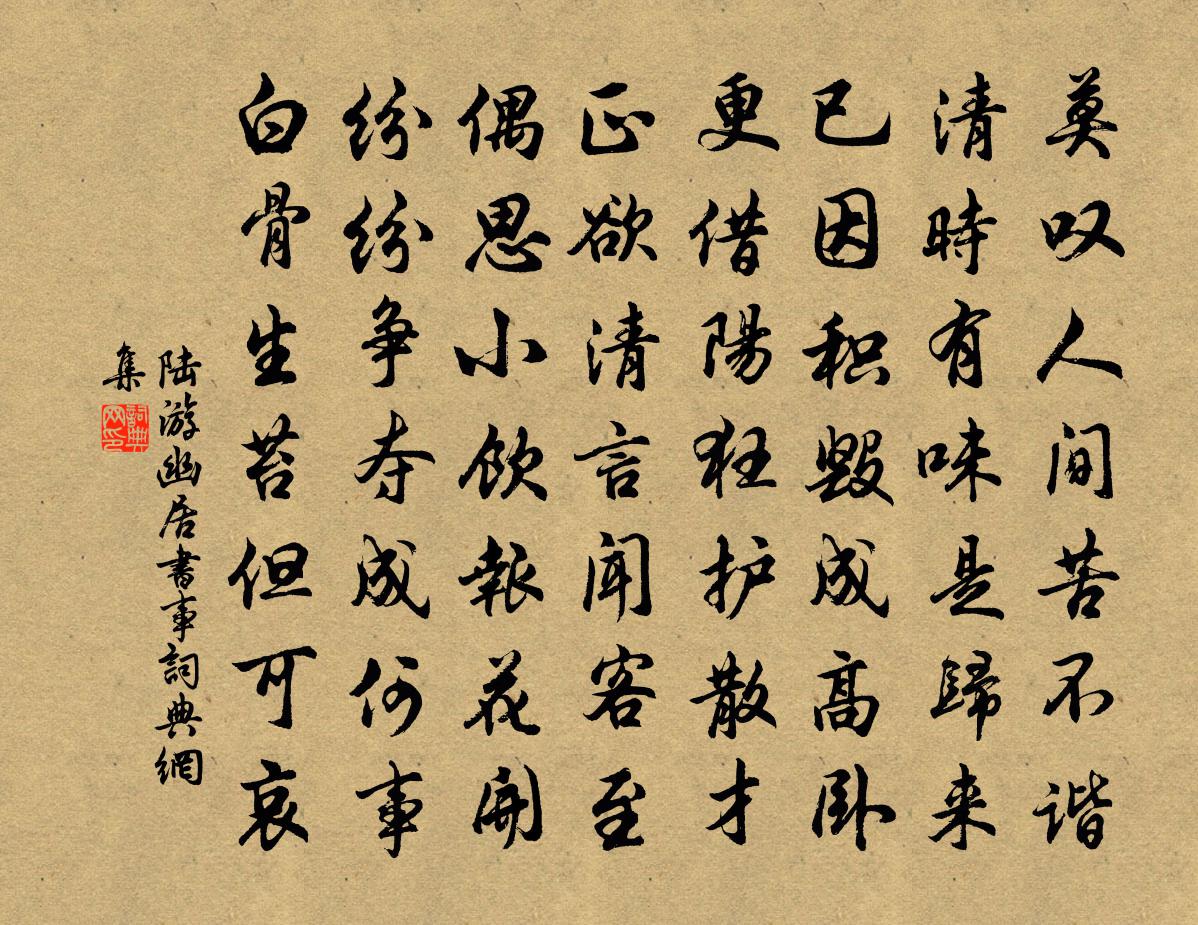 莫叹人间苦不谐
清時有味是歸来
已因积毁成高卧
更借陽狂护散才
正欲清言闻客至
偶思小饮報花開
纷纷争夺成何事
白骨生苔但可哀
陆游幽居書事詞典網
集
詞典
网印